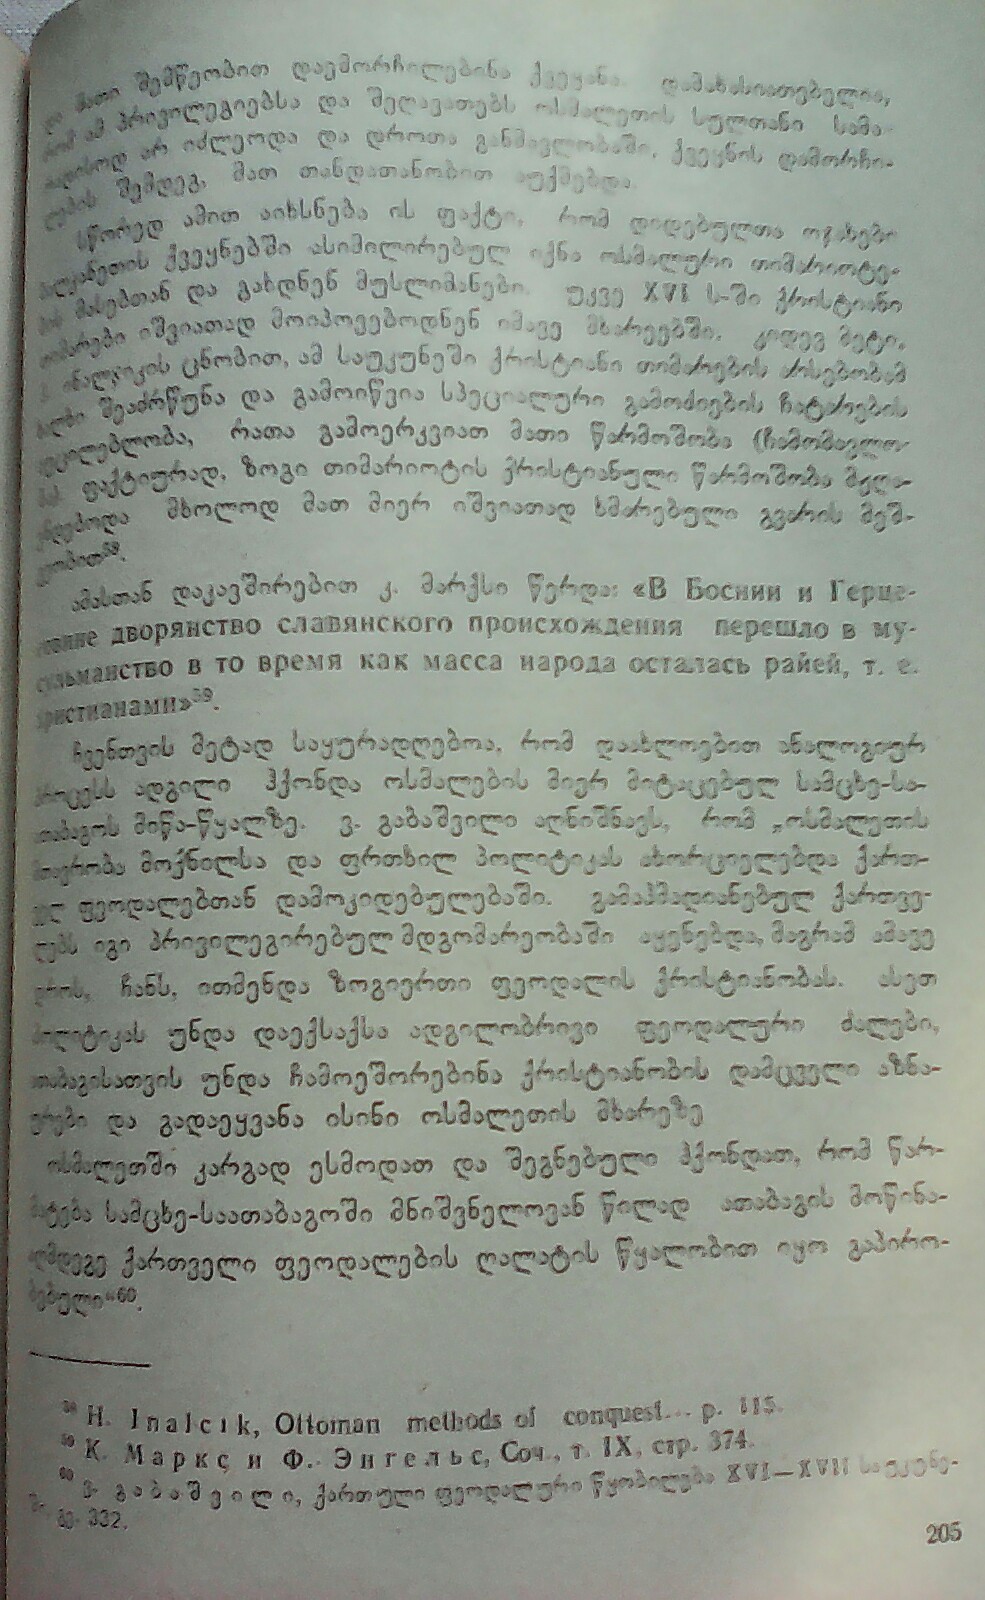 და მათი შემწეობით დაემორჩილებინა ქვეყანა. დამახასიათებელია,
რომ ამ პრივილეგიებსა და შეღავათებს ოსმალეთის სულთანი სამა-
რადისოდ არ იძლეოდა და დროთა განმავლობაში, ქვეყნის დამორჩი-
ლების შემდეგ, მათ თანდათანობით აუქმებდა.
სწორედ ამით აიხსნება ის ფაქტი, რომ დიდებულთა ოჯახები
ბალკანეთის ქვეყნებში ასიმილირებულ იქნა ოსმალური თიმარიოტე-
ბის მასებთან და გახდნენ მუსლიმანები. უკვე XVI ს-ში ქრისტიანი
თიმარები იშვიათად მოიპოვებოდნენ იმავე მხარეებში. კიდევ მეტი,
ინალჯიკის ცნობით, ამ საუკუნეში ქრისტიანი თიმარების არსებობამ
ხალხი შეაძრწუნა და გამოიწვია სპეციალური გამოძიების ჩატარების
აუცილებლობა, რათა გამოერკვიათ მათი წარმოშობა (ჩამომავლო-
ბა). ფაქტიურად, ზოგი თიმარიოტის ქრისტიანული წარმოშობა მჟღა-
ვნდებოდა მხოლოდ მათ მიერ იშვიათად ხმარებული გვარის მეშ-
ვეობით⁵⁸.
ამასთან დაკავშირებით კ. მარქსი წერდა: «В Боснии и Герце-
говине дворянство славянского происхождения перешло в му-
сульманство в то время как масса народа осталась райей, т. е.
христианами»⁵⁹.
ჩვენთვის მეტად საყურადღებოა, რომ დაახლოებით ანალოგიურ
პროცესს ადგილი ჰქონდა ოსმალების მიერ მიტაცებულ სამცხე-სა-
ათაბაგოს მიწა-წყალზე. ვ. გაბაშვილი აღნიშნავს, რომ „ოსმალეთის
მთავრობა მოქნილსა და ფრთხილ პოლიტიკას ახორციელებდა ქართ-
ველ ფეოდალებთან დამოკიდებულებაში. გამაჰმადიანებულ ქართვე-
ლებს იგი პრივილეგირებულ მდგომარეობაში აყენებდა, მაგრამ ამავე
დროს, ჩანს, ითმენდა ზოგიერთი ფეოდალის ქრისტიანობას. ასეთ
პოლიტიკას უნდა დაექსაქსა ადგილობრივი ფეოდალური ძალები,
ათაბაგისათვის უნდა ჩამოეშორებინა ქრისტიანობის დამცველი აზნა-
ურები და გადაეყვანა ისინი ოსმალეთის მხარეზე
ოსმალეთში კარგად ესმოდათ და შეგნებული ჰქონდათ, რომ წარ-
მატება სამცხე-საათაბაგოში მნიშვნელოვან წილად ათაბაგის მოწინა-
აღმდეგე ქართველი ფეოდალების ღალატის წყალობით იყო გაპირო-
ბებული“⁶⁰.
⁵⁸ H. Inalcık, Ottoman methods of conquest... p. 115.
⁵⁹ К. Маркс и Ф. Энгельс, Соч., т. IX, стр. 374.
⁶⁰ ვ. გაბაშვილი, ქართული ფეოდალური წყობილება XVI—XVII საუკუნე-
ში, გვ. 332.
205